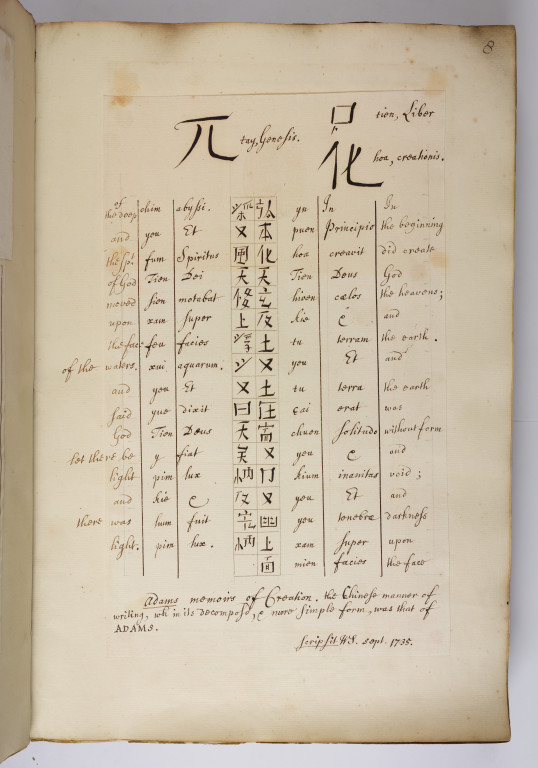 8
tion, Liber
兀 tay, Genesis.
化 hoa, creationis.
of the deep chim abyssi. 深 弘 yn In In
and yeu Et 又 本 puen Principio the beginning
the Spt fum Spiritus 風 化 hoa creavit did create
of God Tien Dei 天 天 Tien Deus God
moved sien metabat 玄 hiven cælos the heavens;
upon xam super 上 及 kie & and
the face feu facies 土 tu terram the earth.
of the waters. xui aquarum. 又 yeu Et and
and yeu Et 又 土 tu terra the earth
said yue dixit 曰 在 çai erat was
God Tien Deus 天 chuen solitudo without form
let there be y fiat 又 yeu & and
light pim lux 炳 冂 kium inanitas void;
and kie & 及 又 yeu Et and
there was lum fuit yeu tenebræ darkness
light. pim lux. 炳 上 xam super upon
面 mien facies the face
Adams memoirs of Creation. the Chinese manner of
writing, wch in its decompos'd, & more simple form, was that of
ADAMS.
scripsit WS. sept. 1735.